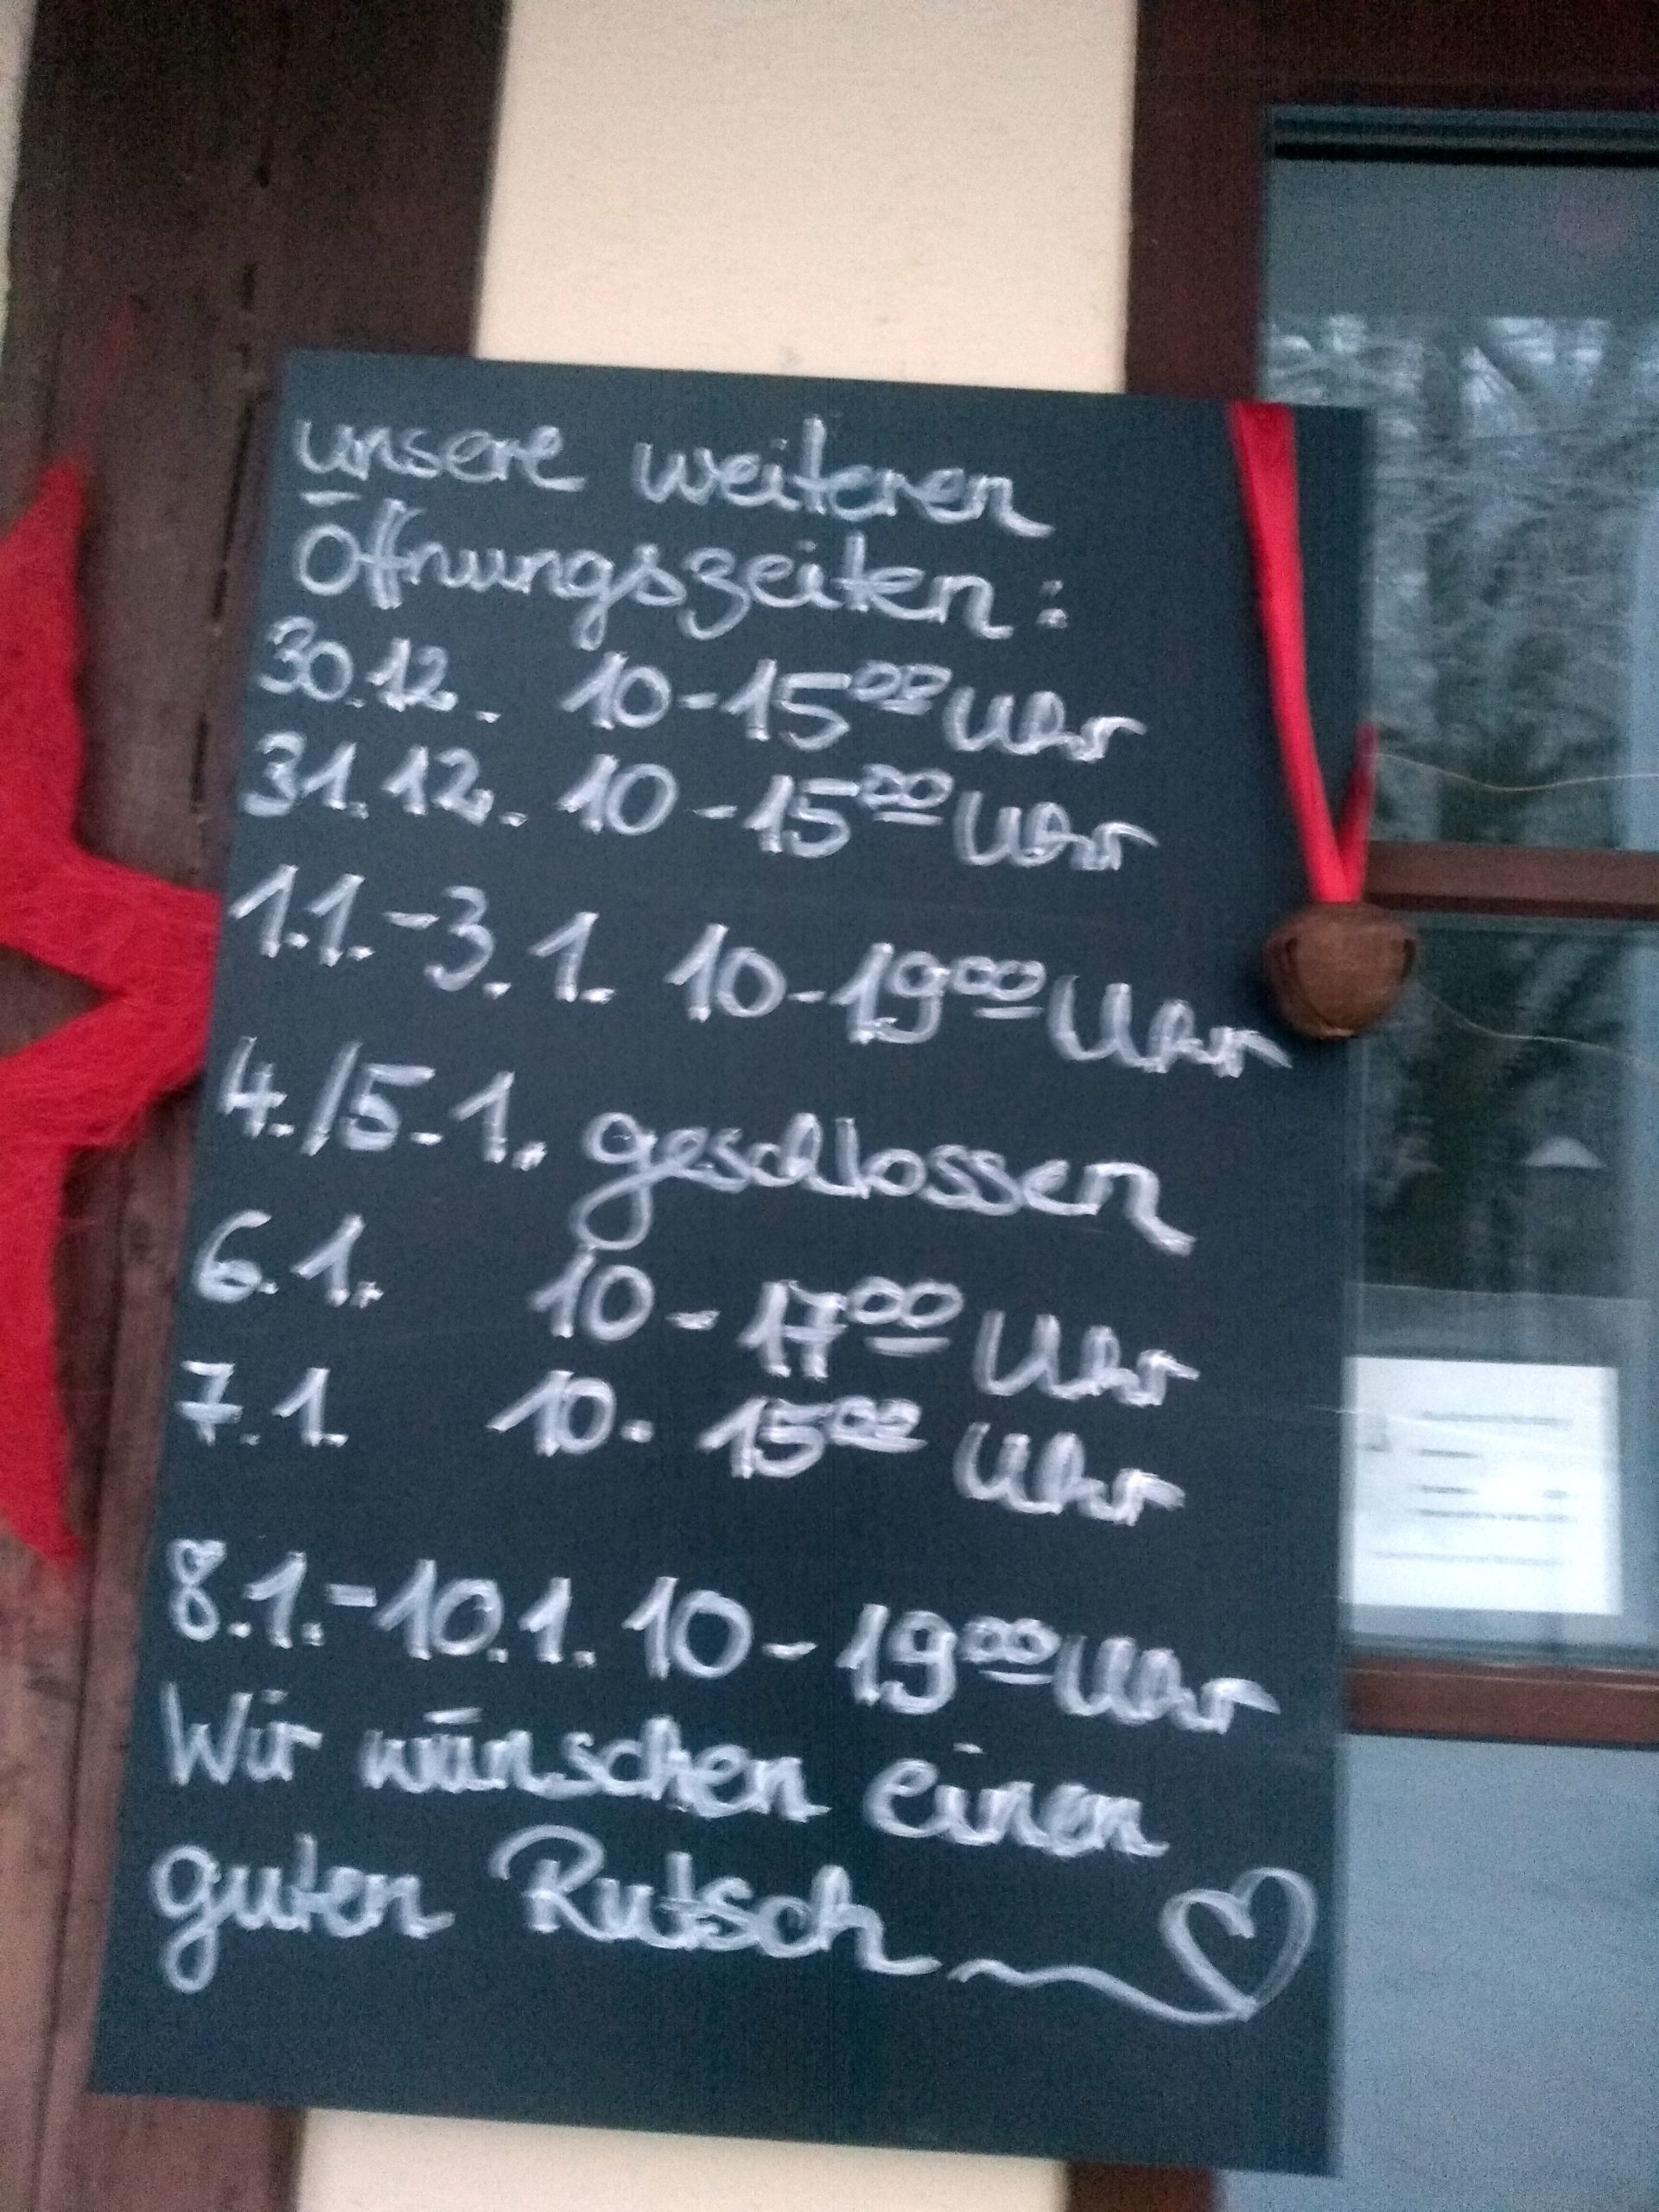 unsere weiteren
Öffnungszeiten:
30.12. 10-15⁰⁰ Uhr
31.12. 10-15⁰⁰ Uhr
1.1.-3.1. 10-19⁰⁰ Uhr
4./5.1. geschlossen
6.1. 10-17⁰⁰ Uhr
7.1. 10-15⁰⁰ Uhr
8.1.-10.1. 10-19⁰⁰ Uhr
Wir wünschen einen
guten Rutsch